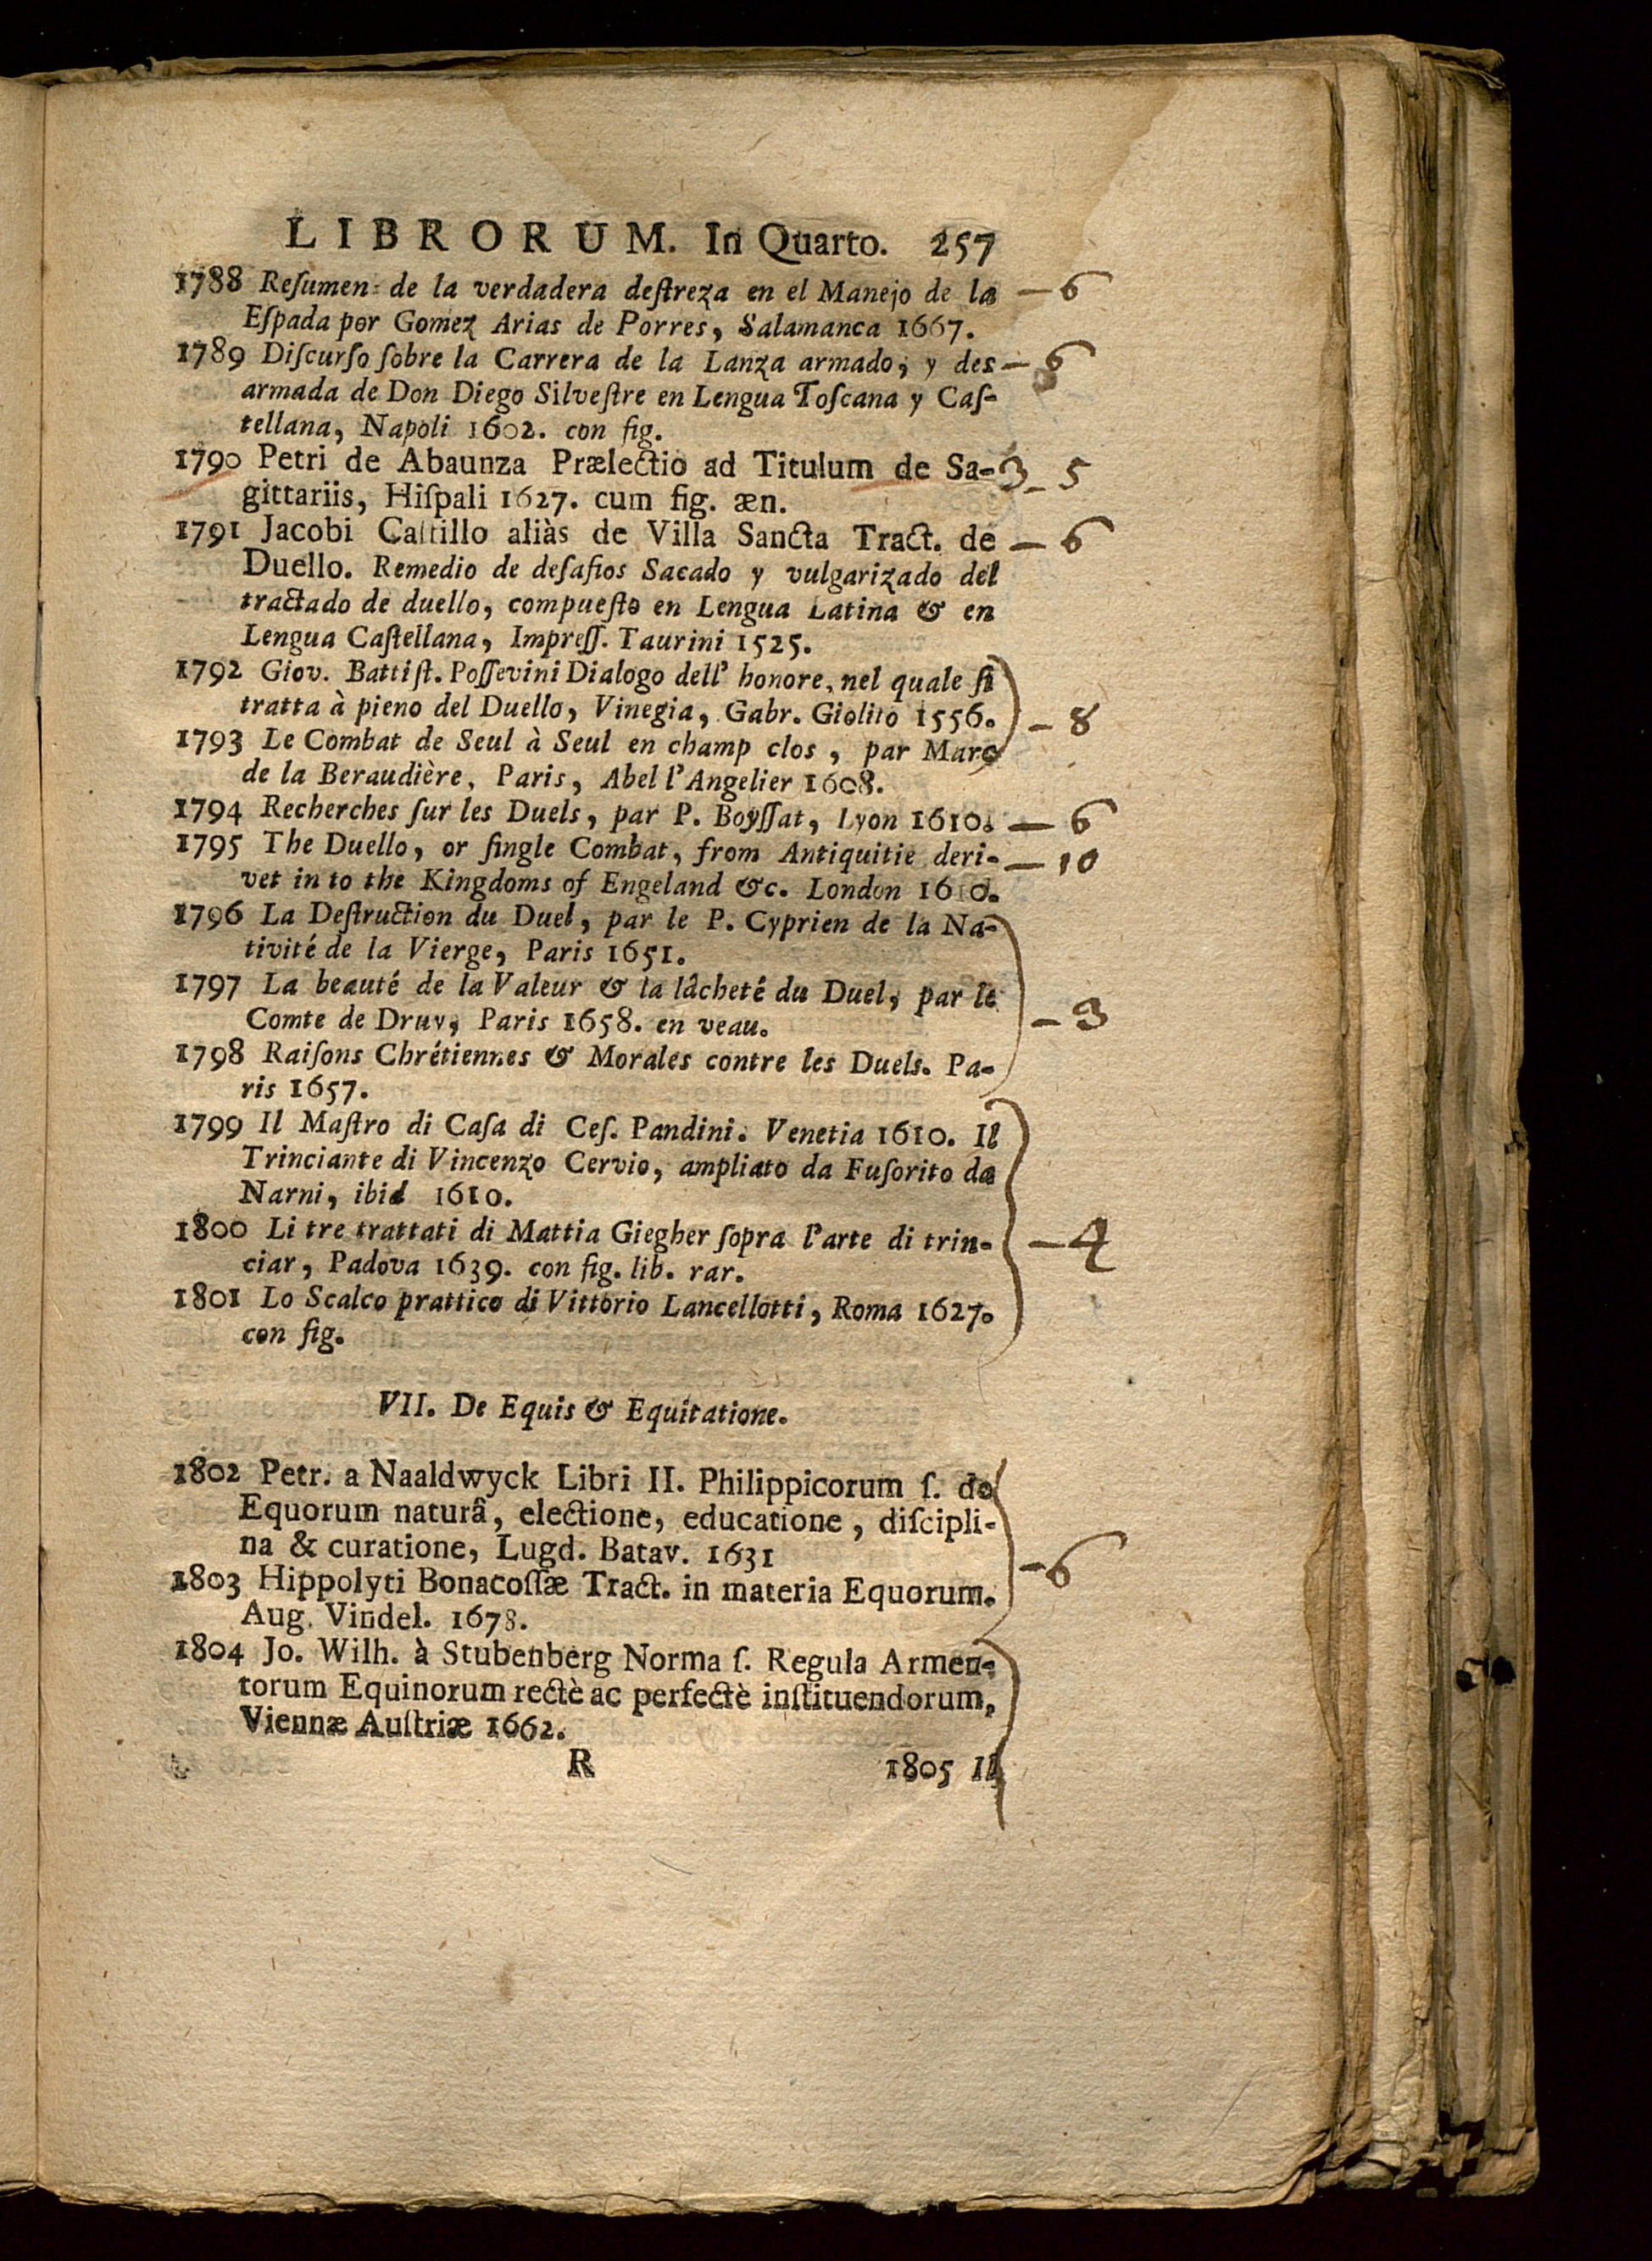 LIBRORUM. In Quarto. 257
1788 Reſumen de la verdadera deſtreza en el Manejo de la — 6
Eſpada por Gomez Arias de Porres, Salamanca 1667.
1789 Diſcurſo ſobre la Carrera de la Lanza armado, y des —
armada de Don Diego Silveſtre en Lengua Toſcana y Caſ-
tellana, Napoli 1602. con fig.
1790 Petri de Abaunza Prælectio ad Titulum de Sa- 3 - 5
gittariis, Hiſpali 1627. cum fig. æn.
1791 Jacobi Caſtillo aliàs de Villa Sancta Tract. de — 6
Duello. Remedio de deſafios Sacado y vulgarizado del
tractado de duello, compueſto en Lengua Latina & en
Lengua Caſtellana, Impreſſ. Taurini 1525.
1792 Giov. Battiſt. Poſſevini Dialogo dell' honore, nel quale ſi
tratta à pieno del Duello, Vinegia, Gabr. Giolito 1556. — 8
1793 Le Combat de Seul à Seul en champ clos, par Marc
de la Beraudière, Paris, Abel l'Angelier 1608.
1794 Recherches ſur les Duels, par P. Boyſſat, Lyon 1610. — 6
1795 The Duello, or ſingle Combat, from Antiquitie deri- — 10
vet in to the Kingdoms of Engeland &c. London 1610.
1796 La Deſtruction du Duel, par le P. Cyprien de la Na-
tivité de la Vierge, Paris 1651.
1797 La beauté de la Valeur & la lâcheté du Duel, par le
Comte de Druy, Paris 1658. en veau. — 3
1798 Raiſons Chrétiennes & Morales contre les Duels. Pa-
ris 1657.
1799 Il Maſtro di Caſa di Ceſ. Pandini. Venetia 1610. Il
Trinciante di Vincenzo Cervio, ampliato da Fuſorito da
Narni, ibid 1610.
1800 Li tre trattati di Mattia Giegher ſopra l'arte di trin- — 4
ciar, Padova 1639. con fig. lib. rar.
1801 Lo Scalco prattico di Vittorio Lancellotti, Roma 1627.
con fig.
VII. De Equis & Equitatione.
1802 Petr. a Naaldwyck Libri II. Philippicorum ſ. de
Equorum naturâ, electione, educatione, diſcipli-
na & curatione, Lugd. Batav. 1631 — 6
1803 Hippolyti Bonacoſſæ Tract. in materia Equorum.
Aug. Vindel. 1678.
1804 Jo. Wilh. à Stubenberg Norma ſ. Regula Armen-
torum Equinorum rectè ac perfectè inſtituendorum,
Viennæ Auſtriæ 1662.
R 1805 Il